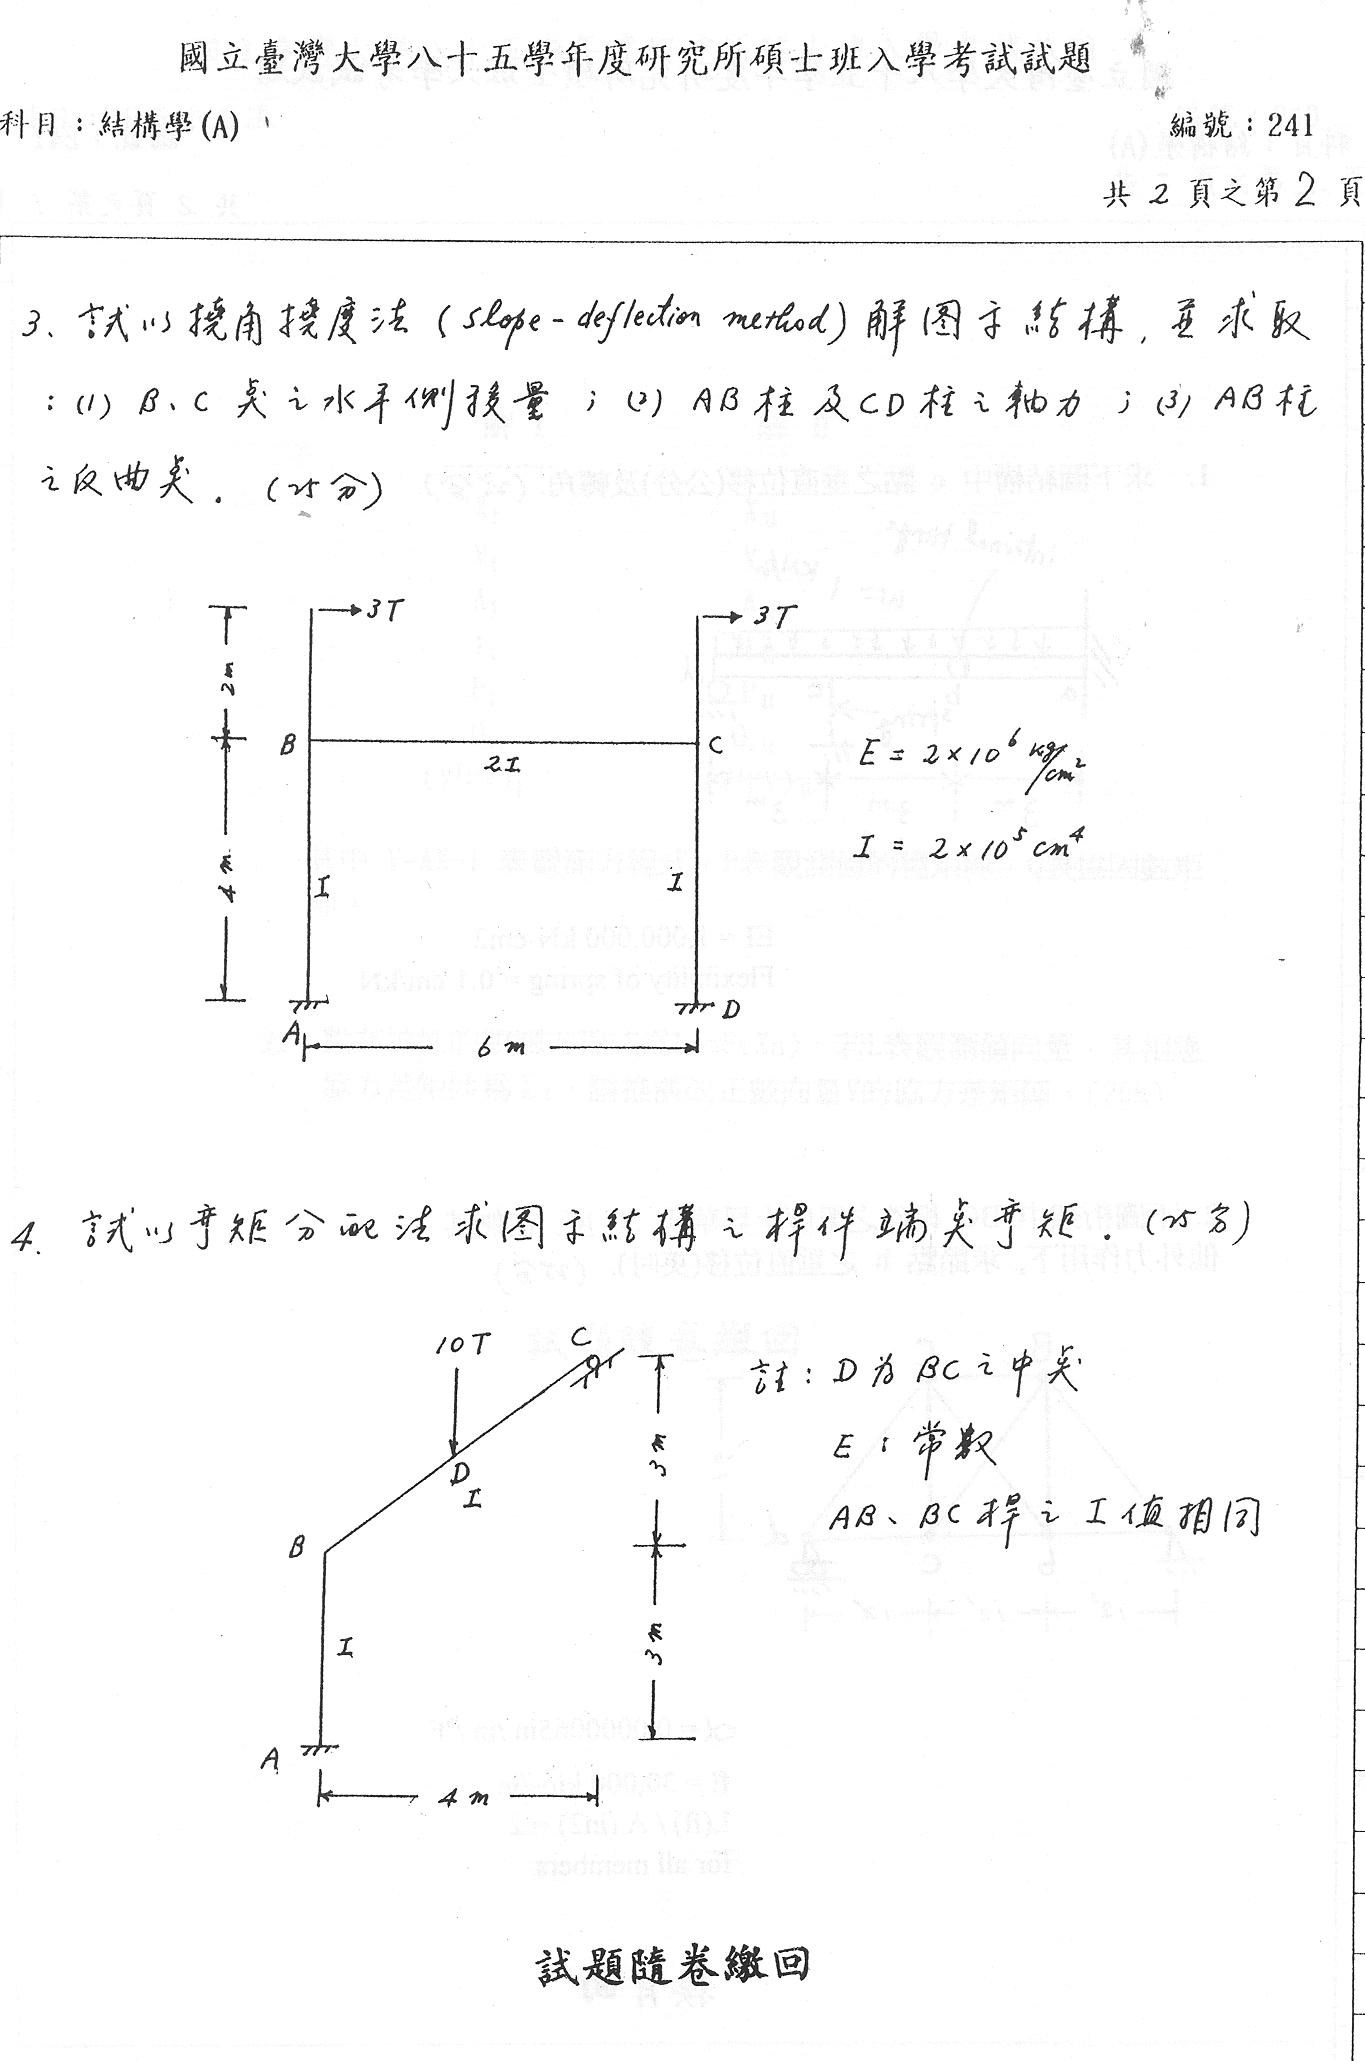 國立臺灣大學八十五學年度研究所碩士班入學考試試題
科目：結構學(A)
編號：241
共 2 頁之第 2 頁
3、試以撓角撓度法 (slope-deflection method) 解図示結構, 並求取
:(1) B、C 點之水平側移量 ; (2) AB柱及CD柱之軸力 ; (3) AB柱
之反曲點. (25分)
3T
3T
2m
B
C
2I
E = 2×10⁶ kg/cm²
I = 2×10⁵ cm⁴
4m
I
I
A
D
6 m
4. 試以彎矩分配法求図示結構之桿件端點彎矩. (25分)
10T
C
註: D為BC之中點
3m
E: 常數
D
I
AB、BC桿之I值相同
B
3m
I
A
4 m
試題隨卷繳回